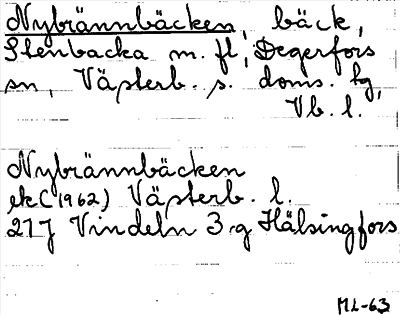 Nybrännbäcken, bäck,
Stenbacka m. fl., Degerfors
sn, Västerb. s. doms. hg,
Vb. l.
Nybrännbäcken
ek (1962) Västerb. l.
21J Vindeln 3 g Hälsingfors
ML-63